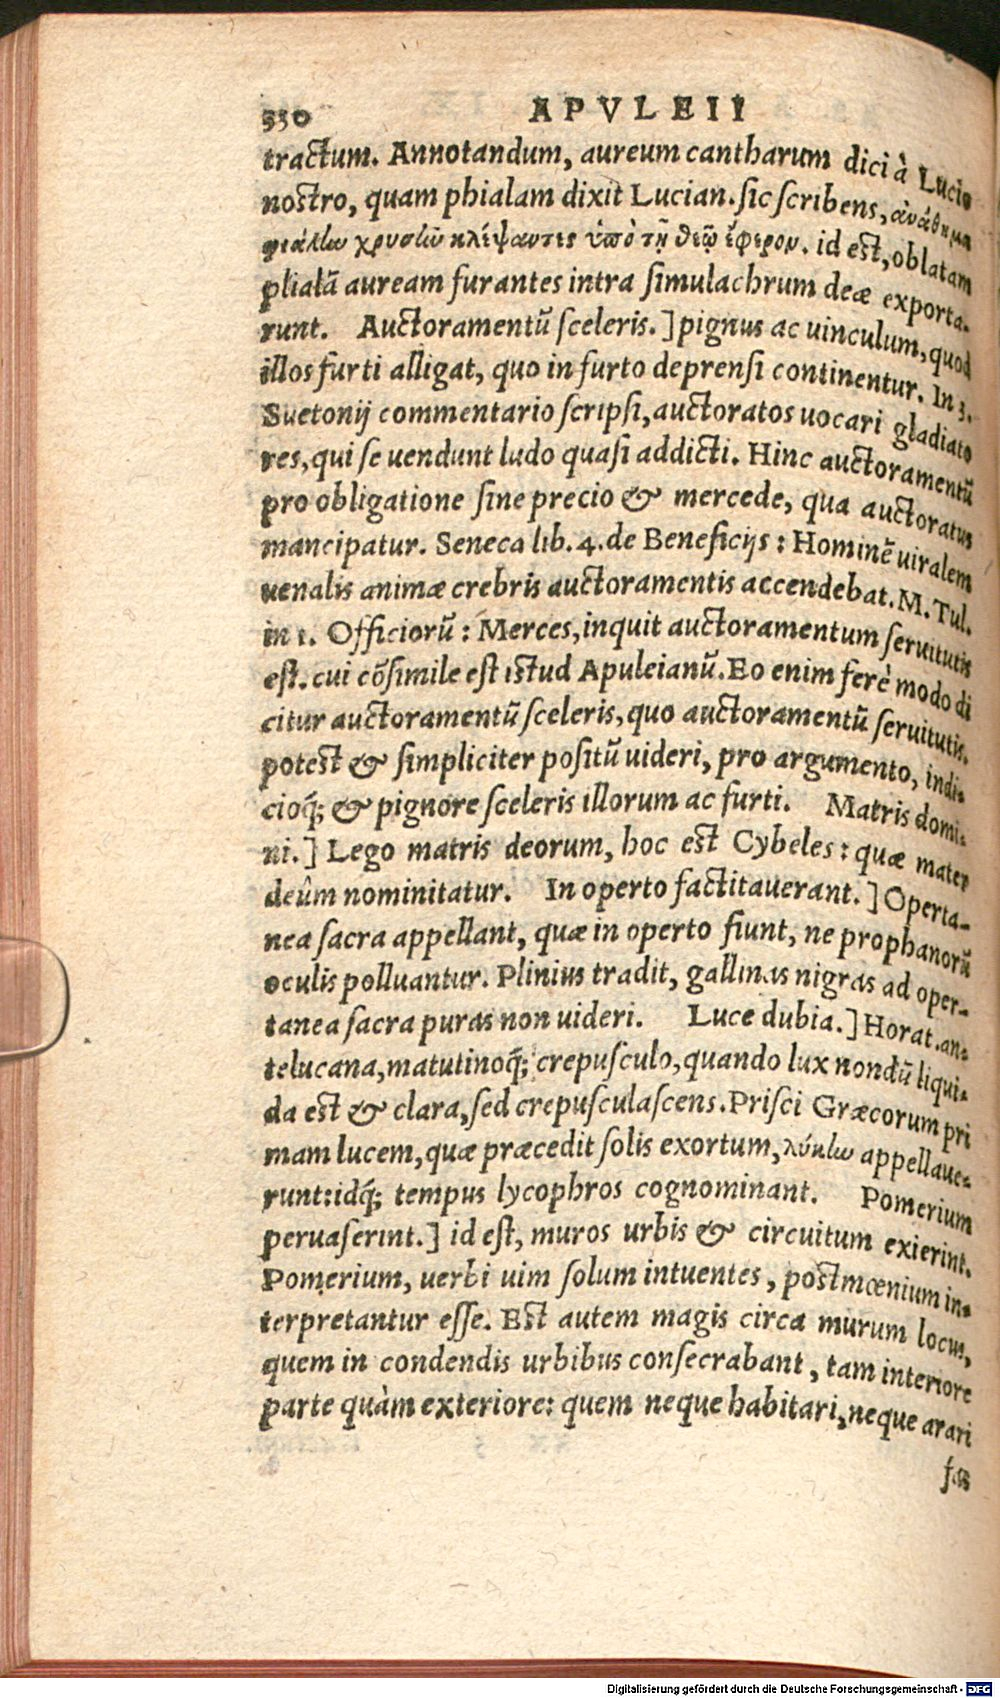 550 APVLEII
tractum. Annotandum, aureum cantharum dici à Lucio
nostro, quam phialam dixit Lucian. sic scribens, ἀνάθημα
φιάλην χρυσῆν κλέψαντες ὑπὸ τῇ θεῷ ἔφερον. id est, oblatam
plialā auream furantes intra simulachrum deæ exporta-
runt. Auctoramentū sceleris.] pignus ac uinculum, quod
illos furti alligat, quo in furto deprensi continentur. In 3.
Suetonij commentario scripsi, auctoratos uocari gladiato
res, qui se uendunt ludo quasi addicti. Hinc auctoramentū
pro obligatione sine precio & mercede, qua auctoratus
mancipatur. Seneca lib. 4. de Beneficijs: Hominē uiralem
uenalis animæ crebris auctoramentis accendebat. M. Tul.
in 1. Officiorū: Merces, inquit auctoramentum seruitutis
est. cui cōsimile est istud Apuleianū. Eo enim ferè modo di
citur auctoramentū sceleris, quo auctoramentū seruitutis.
potest & simpliciter positū uideri, pro argumento, indi-
cioq̃; & pignore sceleris illorum ac furti. Matris domi-
ni.] Lego matris deorum, hoc est Cybeles: quæ mater
deûm nominitatur. In operto factitauerant.] Operta-
nea sacra appellant, quæ in operto fiunt, ne prophanorū
oculis polluantur. Plinius tradit, gallinas nigras ad oper-
tanea sacra puras non uideri. Luce dubia.] Horat. an-
telucana, matutinoq̃; crepusculo, quando lux nondū liqui-
da est & clara, sed crepusculascens. Prisci Græcorum pri
mam lucem, quæ præcedit solis exortum, λύκην appellaue-
runt: idq̃; tempus lycophros cognominant. Pomerium
peruaserint.] id est, muros urbis & circuitum exierint.
Pomerium, uerbi uim solum intuentes, postmœnium in-
terpretantur esse. Est autem magis circa murum locus,
quem in condendis urbibus consecrabant, tam interiore
parte quàm exteriore: quem neque habitari, neque arari
fas
Digitalisierung gefördert durch die Deutsche Forschungsgemeinschaft - DFG